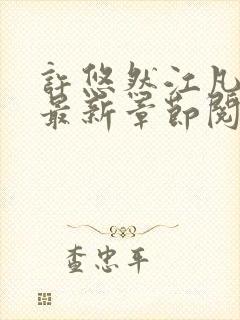 許悠然江凡
最新章節閱
查忠平